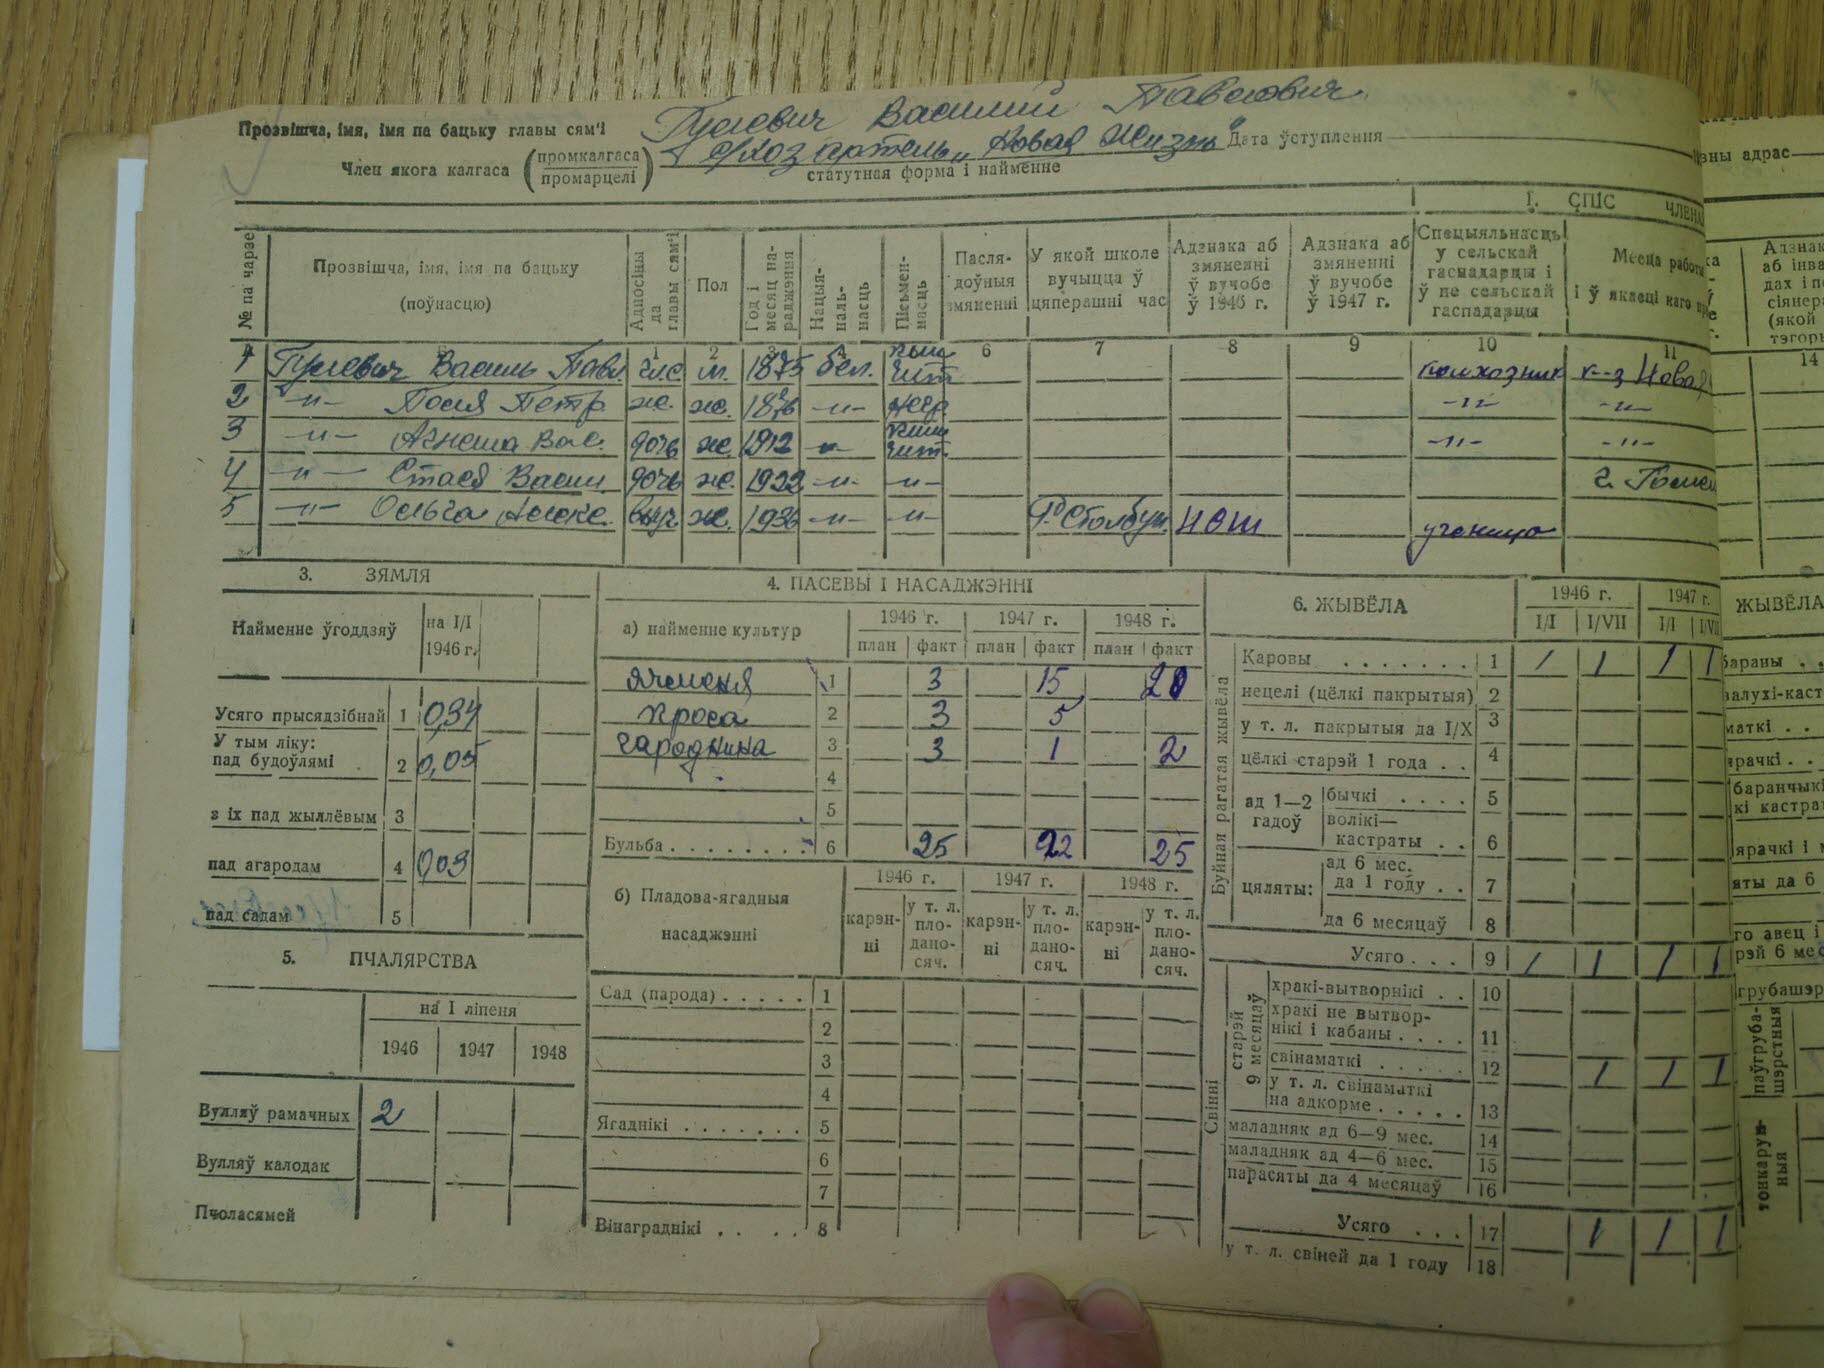 Прозвішча, імя, імя па бацьку главы сям'і Гулевич Василий Павлович
Член якога калгаса (промкалгаса промарцелі) с/хоз артель "Новая Жизнь" Дата ўступлення
статутная форма і найменне
зны адрас
I. СПІС ЧЛЕНА
№ па чарзе | Прозвішча, імя, імя па бацьку (поўнасцю) | Адносіны да главы сям'і | Пол | Год і месяц нараджэння | Нацыянальнасць | Пісьменнасць | Паслядоўныя змяненні | У якой школе вучыцца ў цяперашні час | Адзнака аб змяненні ў вучобе ў 1946 г. | Адзнака аб змяненні ў вучобе ў 1947 г. | Спецыяльнасць у сельскай гаспадарцы і ў не сельскай гаспадарцы | Месца работы і ў якасці каго
1 2 3 6 7 8 9 10 11 14
1 Гулевич Василь Павл. гл.с м. 1875 бел. чит колхозник к-з Новая
2 -"- Петр. ж. ж. 1876 -"- негр. -"- -"-
3 -"- Агнеша Вас. дочь ж. 1912 -"- чит. -"- -"-
4 -"- Стася Васил. дочь ж. 1922 -"- -"- г. Гомел
5 -"- Ольга внуч ж. 1936 -"- -"- Столбун НСШ ученица
3. ЗЯМЛЯ
Найменне ўгоддзяў | на I/I 1946 г.
Усяго прысядзібнай 1 0,34
У тым ліку:
пад будоўлямі 2 0,05
з іх пад жыллёвым 3
пад агародам 4 0,03
пад садам 5
5. ПЧАЛЯРСТВА
на I ліпеня
1946 1947 1948
Вулляў рамачных 2
Вулляў калодак
Пчоласямей
4. ПАСЕВЫ І НАСАДЖЭННІ
а) найменне культур | 1946 г. | 1947 г. | 1948 г.
план факт план факт план факт
ячменя 1 3 15 20
проса 2 3 5
гародніна 3 3 1 2
4
5
Бульба . . . . . . . . 6 25 22 25
б) Пладова-ягадныя насаджэнні | 1946 г. | 1947 г. | 1948 г.
карэнні | у т. л. пладаносяч. | карэнні | у т. л. пладаносяч. | карэнні | у т. л. пладаносяч.
Сад (парода) . . . . . 1
2
3
4
Ягаднікі . . . . . . . 5
6
7
Вінаграднікі . . . . . 8
6. ЖЫВЁЛА | 1946 г. | 1947 г.
I/I I/VII I/I I/VII
Буйная рагатая жывёла
Каровы . . . . . . . 1 1 1 1 1
нецелі (цёлкі пакрытыя) 2
у т. л. пакрытыя да I/X 3
цёлкі старэй 1 года . . 4
ад 1—2 гадоў
бычкі . . . . 5
волікі—кастраты . . 6
цяляты:
ад 6 мес. да 1 году . . 7
да 6 месяцаў 8
Усяго . . . 9 1 1 1 1
Свінні
старэй 9 месяцаў
хракі-вытворнікі . . 10
хракі не вытворнікі і кабаны . . . . 11
свінаматкі . . . . . 12 1 1 1
у т. л. свінаматкі на адкорме . . . . . 13
маладняк ад 6—9 мес. 14
маладняк ад 4—6 мес. 15
парасяты да 4 месяцаў 16
Усяго . . . 17 1 1 1
у т. л. свіней да 1 году 18
ЖЫВЁЛА
бараны . .
валухі-каст
маткі . .
ярачкі . .
баранчыкі
кі кастра
ярачкі і
яты да 6
го авец і
рэй 6 мес
грубашэр
паўгруба-шэрстныя
тонкарунныя